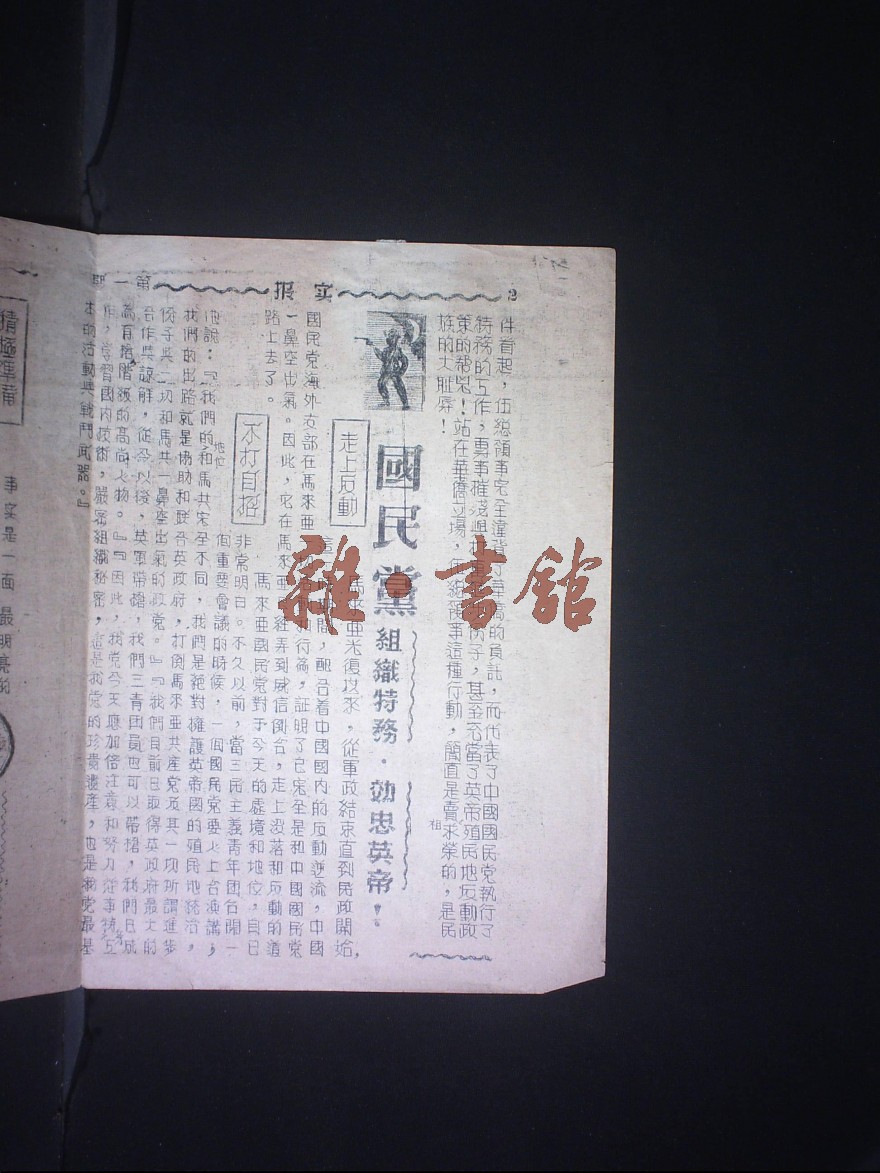 2
实报
第一期
件首起,伍總領事完全違背了華僑的負託,而代表了中國國民党執行了
特務的工作,專事摧殘
份子,甚至充當了英帝殖民地反動政
策的帮兇!站在華僑立場,
領事這種行動,簡直是賣祖求榮的,是民
族的大恥辱!
國民黨組織特務·効忠英帝!
走上反動
馬來亜光復以來,從軍政結束直到民政開始,
這
時間,配合着中國國內的反動逆流,中國
國民党海外支部在馬來亜
行為,証明了它完全是和中國國民党
一鼻空出氣。因此,它在馬來亜
經弄到威信倒台,走上沒落和反動的道
路上去了。
不打自招
馬來亜國民党對于今天的處境和地位,自己
非常明白。不久以前,當三民主義青年团召開一
個重要會議的時候,一個國民党要人上台演講,
他說:『我們的地位和馬共完全不同,我們是絕對擁護英帝國的殖民地統治,
我們的出路就是協助和联合英政府,打倒馬來亜共産党及其一切所謂進步
份子與一切和馬共一鼻空出氣的政党。』『我們目前已取得英政府最大的
合作與諒解,從今以後,英軍带槍,我們三青团員也可以带槍,我們已成
為有階級的高尚人物。』『因此,我党今天應加倍注意和努力從事特务工
作,學習國內技術,嚴密組織秘密,這是我党的珍貴遺產,也是我党最基
本的活動與戰鬥武器。』
積極準備
事实是一面最明亮的
雜·書館